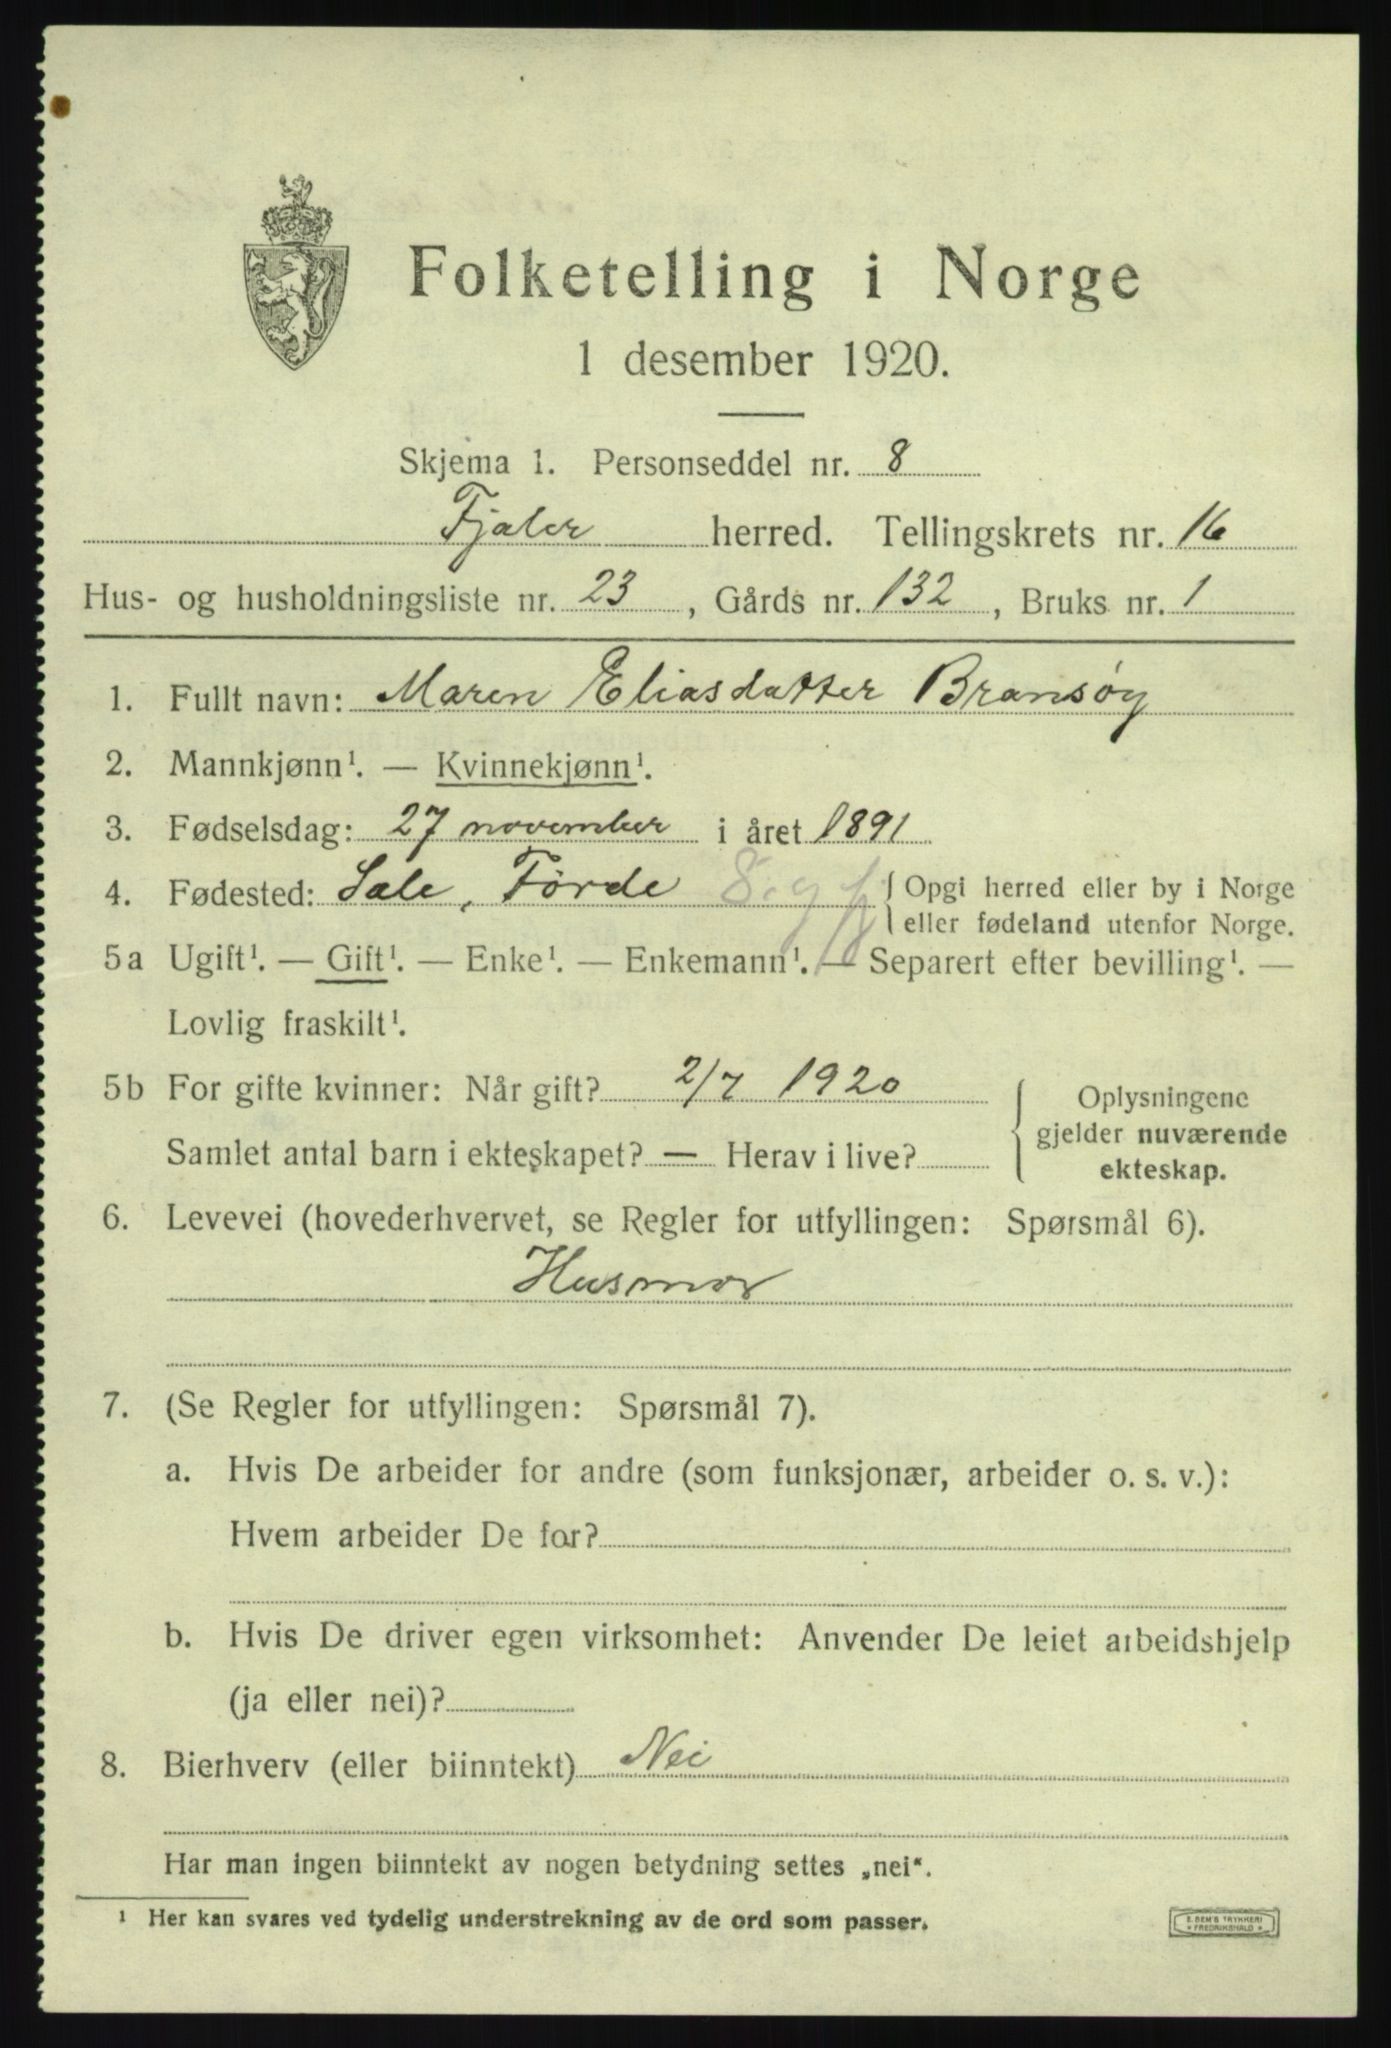 Folketelling i Norge
1 desember 1920.
Skjema 1. Personseddel nr. 8
Fjaler herred. Tellingskrets nr. 16
Hus- og husholdningsliste nr. 23, Gårds nr. 132, Bruks nr. 1
1. Fullt navn: Maren Eliasdatter Bransøy
2. Mannkjønn¹. — Kvinnekjønn¹.
3. Fødselsdag: 27 november i året 1891
4. Fødested: Sale, Førde { Opgi herred eller by i Norge
eller fødeland utenfor Norge.
5a Ugift¹. — Gift¹. — Enke¹. — Enkemann¹. — Separert efter bevilling¹. —
Lovlig fraskilt¹.
5b For gifte kvinner: Når gift? 2/7 1920
Samlet antal barn i ekteskapet? — Herav i live?
{ Oplysningene
gjelder nuværende
ekteskap.
6. Levevei (hovederhvervet, se Regler for utfyllingen: Spørsmål 6).
Husmor
7. (Se Regler for utfyllingen: Spørsmål 7).
a. Hvis De arbeider for andre (som funksjonær, arbeider o. s. v.):
Hvem arbeider De for?
b. Hvis De driver egen virksomhet: Anvender De leiet arbeidshjelp
(ja eller nei)?
8. Bierhverv (eller biinntekt) Nei
Har man ingen biinntekt av nogen betydning settes „nei“.
¹ Her kan svares ved tydelig understrekning av de ord som passer.
E. SEM'S TRYKKERI
* FREDRIKSHALD *